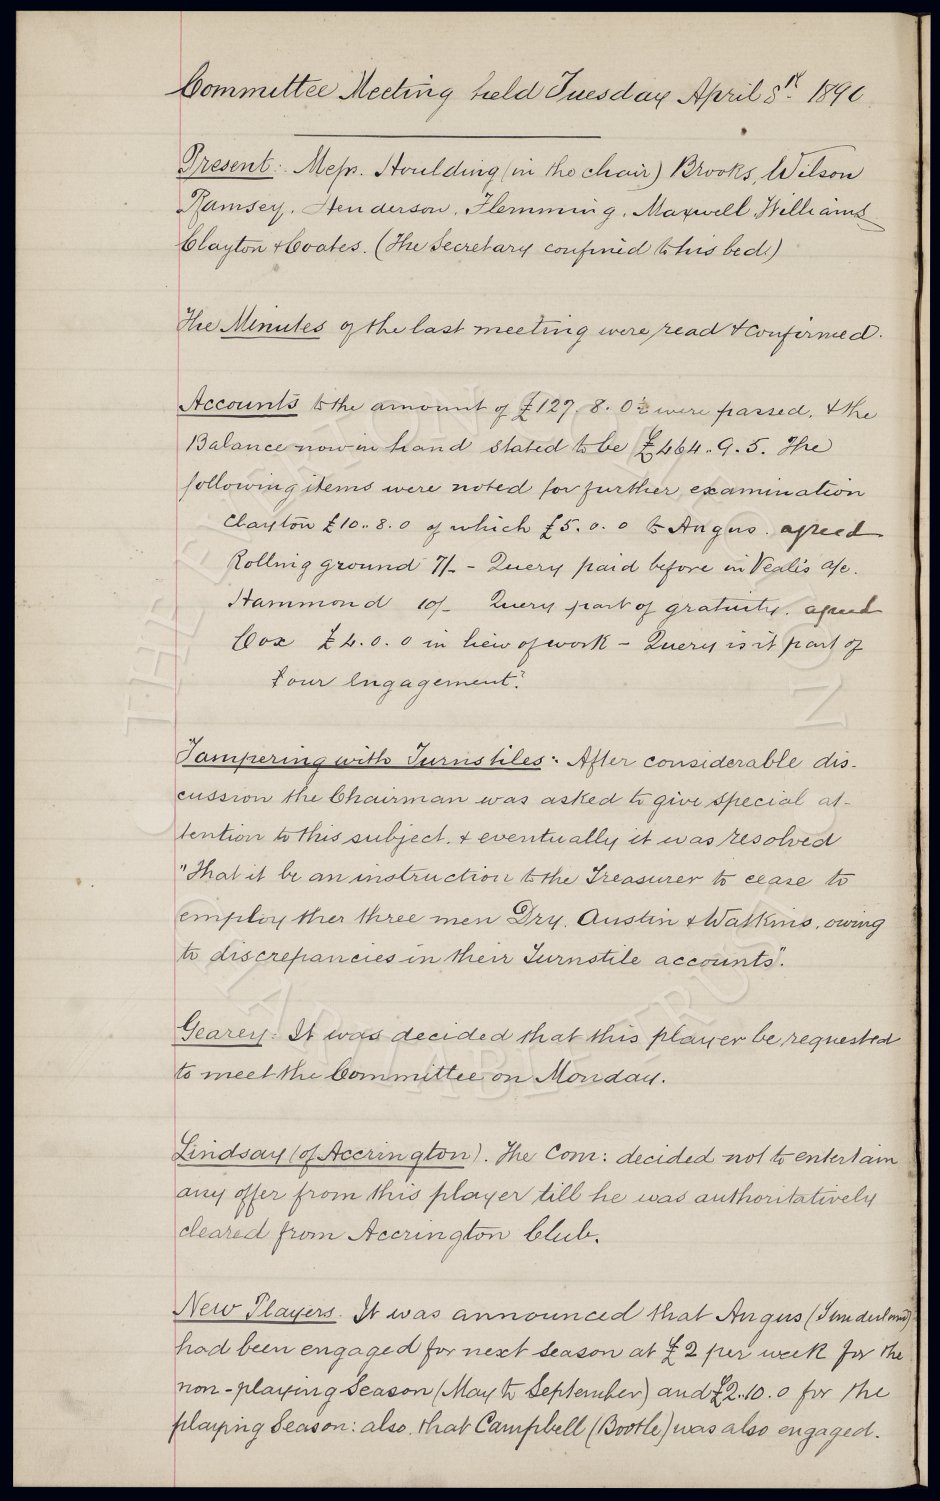 Committee Meeting held Tuesday April 8th 1890
Present: Messrs. Houlding (in the chair) Brooks, Wilson
Ramsey, Henderson, Flemming, Maxwell, Williams
Clayton & Coates. (The Secretary confined to his bed)
The Minutes of the last meeting were read & confirmed.
Accounts to the amount of £127. 8. 0½ were passed, & the
Balance now in hand stated to be £464..9.5. The
following items were noted for further examination
Clayton £10..8.0 of which £5.0.0 to Angus. agreed
Rolling ground 7/- - Query paid before in Veale's a/c.
Hammond 10/- Query part of gratuity. agreed
Cox £4.0.0 in lieu of work - Query is it part of
our engagement?
Tampering with Turnstiles: After considerable dis-
cussion the Chairman was asked to give special at-
tention to this subject, & eventually it was resolved
"That it be an instruction to the Treasurer to cease to
employ ther three men Dry, Austin & Watkins, owing
to discrepancies in their Turnstile accounts".
Gearey: It was decided that this player be requested
to meet the Committee on Monday.
Lindsay (of Accrington). The Com: decided not to entertain
any offer from this player till he was authoritatively
cleared from Accrington Club.
New Players. It was announced that Angus (Sunderland)
had been engaged for next season at £2 per week for the
non-playing Season (May to September) and £2..10.0 for the
playing Season: also that Campbell (Bootle) was also engaged.
THE EVERTON COLLECTION
CHARITABLE TRUST